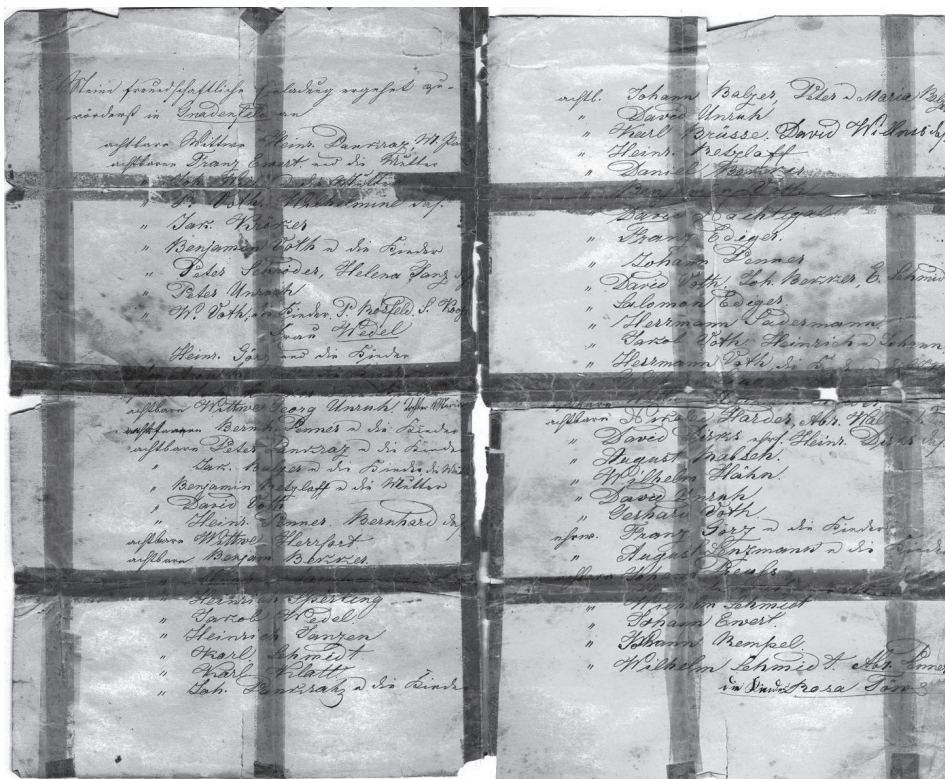 Meine freundschaftliche Einladung ergehet zu-
vörderst in Gnadenfeld an
achtbare Wittwe Heinr. Pankraz W.
achtbaren Franz Ewert und die Mutter
die Mutter
" Voth, Wilhelmine das.
" Jak. Kröker
" Benjamin Voth u die Kinder
" Peter Schröder, Helena Janz
" Peter Unruh
" W. Voth, u Kinder, P. Rosfeld, S.
Frau Wedel
Heinr. Görz und die Kinder
achtbare Wittwe Georg Unruh
Bernh. Penner u die Kinder
achtbaren Peter Pankraz u die Kinder
" Jak. Balzer u die Kinder, die
" Benjamin Retzlaff u die Mutter
" David Voth
" Heinr. Penner. Bernhard das
achtbare Wittwe Herrfort
achtbaren Benjam Bekker
" Heinrich Sperling
" Jakob Wedel
" Heinrich Janzen
" Karl Schmidt
" Karl Klatt
" Joh. Pankratz u die Kinder
achtb. Johann Balzer, Peter u Maria
" David Unruh
" Karl Brüsse. David Willms das
" Heinr. Retzlaff
" Daniel Bekker
" Voth
" David Nachtigal
" Franz Ediger.
" Johann Penner
" David Voth, Joh. Bekker, E. Schmidt
" Salomon Ediger
" Herrmann Sudermann
" Jakob Voth Heinrich u Johann
" Herrmann Voth die Kinder
achtbaren Nikolai Harder, Abr. Wall
" David Dirks ehrs. Heinr. Dirks das
" August Rabsch.
" Wilhelm Hähn.
" David Unruh
" Gerhard Voth
ehrw. Franz Görz u die Kinder
" August Lenzmann u die Kinder
" Wilhelm Schmidt
" Johann Ewert
" Johann Rempel
" Wilhelm Schmidt. Abr. Penner
die Kinder Rosa